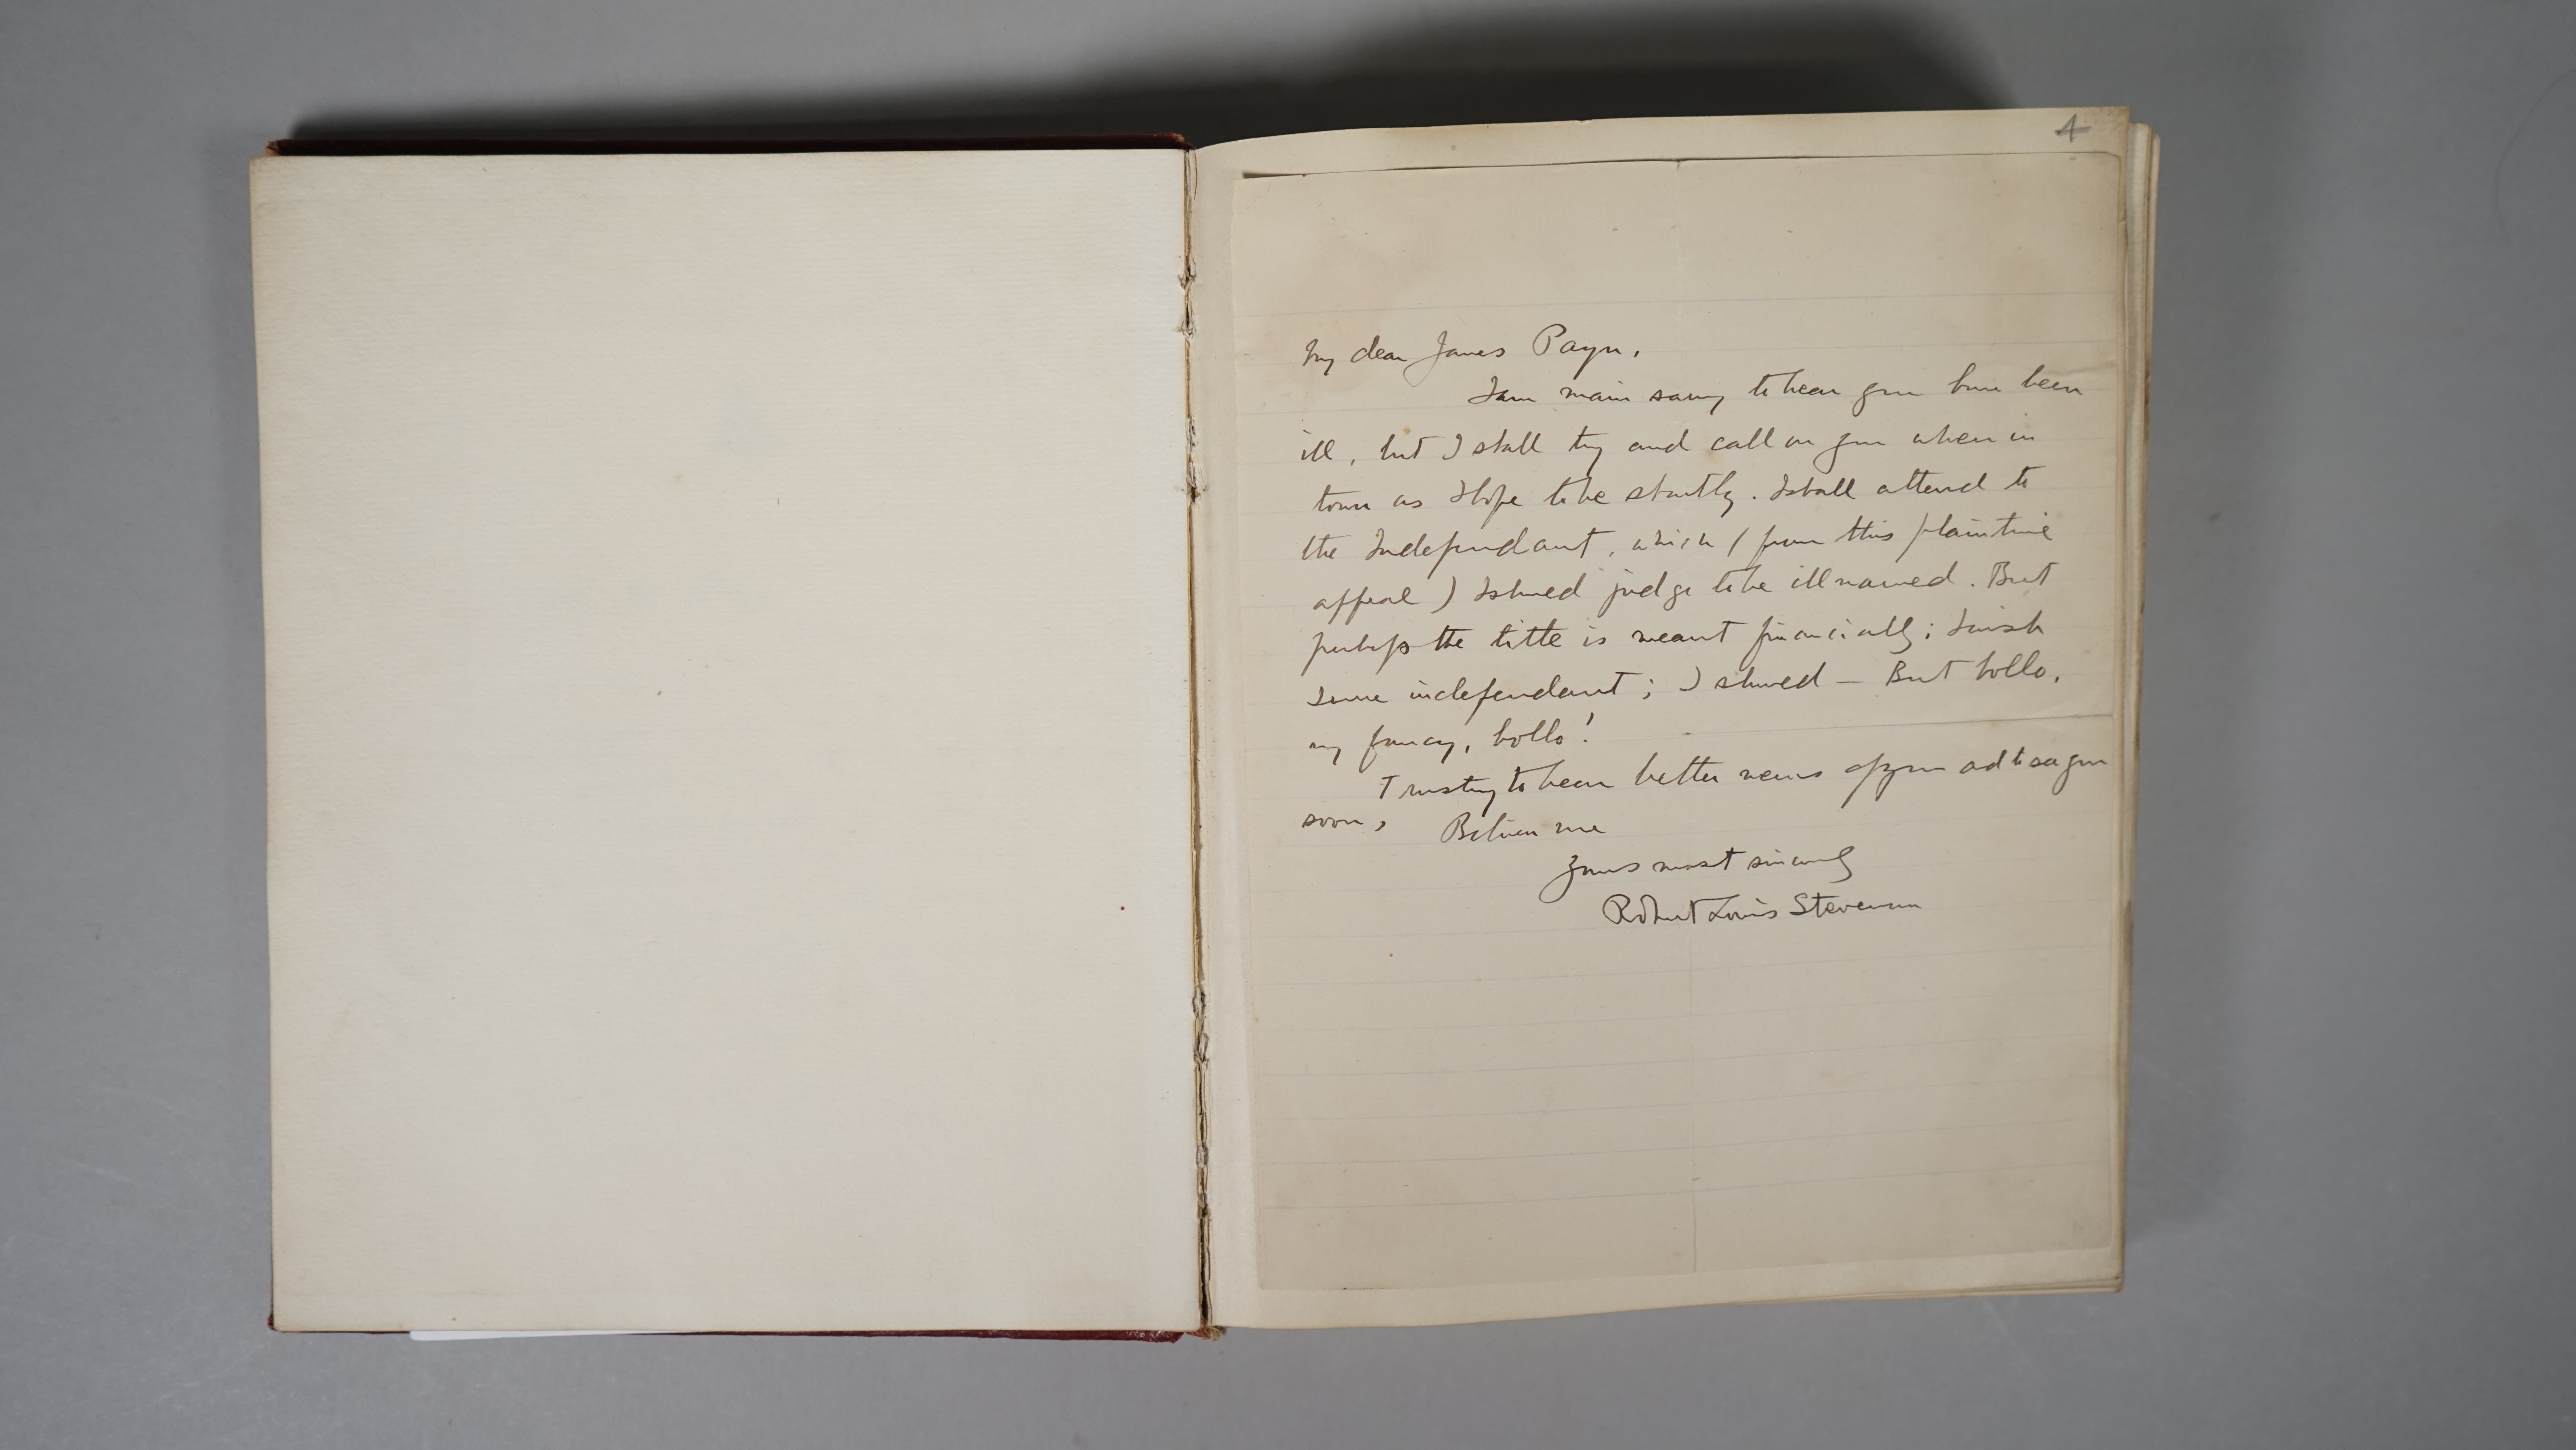 4
My dear James Payn,
I am main sorry to hear you have been
ill, but I shall try and call on you when in
town as I hope to be shortly. I shall attend to
the Independant, which (from this plaintive
appeal) I should judge to be ill named. But
perhaps the title is meant financially; I wish
I were independant; I should — But hollo,
my fancy, hollo!
Trusting to hear better news of you and to see you
soon, Believe me
Yours most sincerely
Robert Louis Stevenson